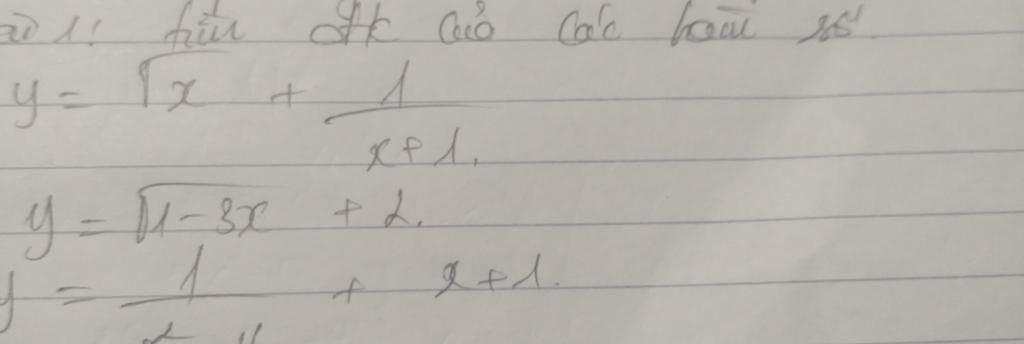 1: Tìm đk của các hàm số.
y = √x + 1/(x+1).
y = √(1-3x) + 2.
y = 1/ + x+1.